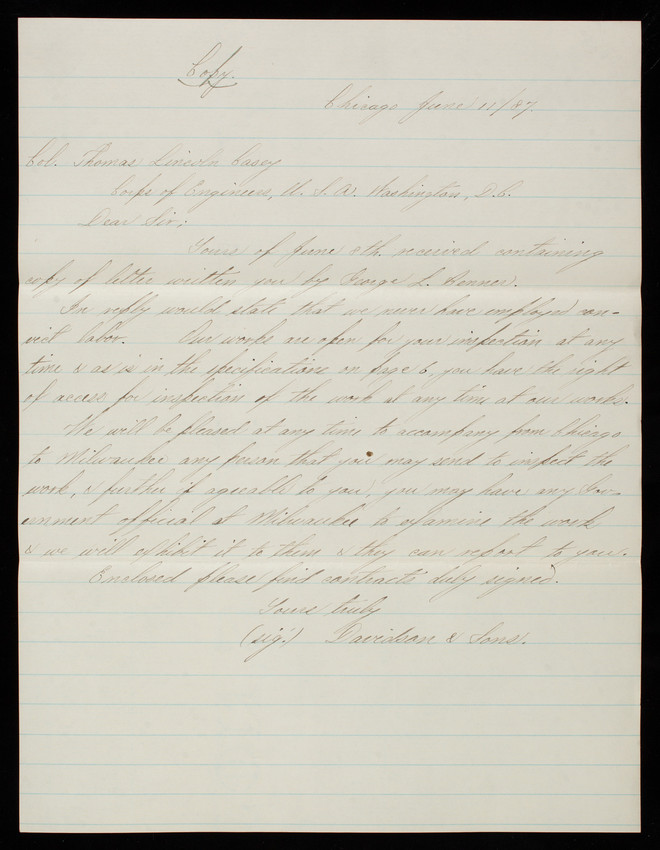 Copy.
Chicago June 11/87.
Col. Thomas Lincoln Casey
Corps of Engineers, U. S. A. Washington, D.C.
Dear Sir;
Yours of June 8th. received containing
copy of letter written you by George L. Henner.
In reply would state that we never have employed con-
vict labor. Our works are open for your inspection at any
time & as is in the specifications on page 6, you have the right
of access for inspection of the work at any time at our works.
We will be pleased at any time to accompany from Chicago
to Milwaukee any person that you may send to inspect the
work, & further if agreeable to you, you may have any Gov-
ernment official at Milwaukee to examine the work
& we will exhibit it to them & they can report to you.
Enclosed please find contracts duly signed.
Yours truly
(sig.) Davidson & Sons.